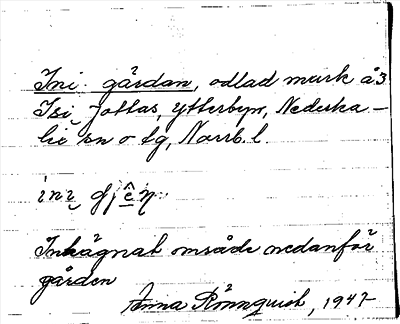 Ini gårdan, odlad mark å3
Isi Jottas, Ytterbyn, Nederka-
lix sn o tg, Norrb. l.
Inhägnat område nedanför
gården
Anna Rönnquist, 1947